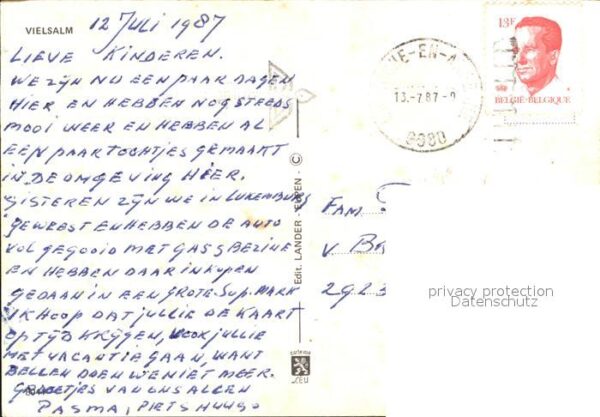 VIELSALM
12 JULI 1987
LIEVE KINDEREN.
WE ZIJN NU EEN PAAR DAGEN
HIER EN HEBBEN NOG STEEDS
MOOI WEER EN HEBBEN AL
EEN PAAR TOCHTJES GEMAAKT
IN DE OMGEVING HIER.
GISTEREN ZIJN WE IN LUXEMBURG
GEWEEST EN HEBBEN DE AUTO
VOL GEGOOID MET GAS & BEZINE
EN HEBBEN DAAR INKOPEN
GEDAAN IN EEN GROTE SUP. MARK
IK HOOP DAT JULLIE DE KAART
OP TIJD KRIJGEN, VOOR JULLIE
MET VACANTIE GAAN, WANT
BELLEN DOEN WE NIET MEER.
GROETJES VAN ONS ALLEN
PASMA, PIETS
Edit. LANDER - EUPEN - C
13F
BELGIË-BELGIQUE
13.-7.87
FAM.
V
privacy protection
Datenschutz